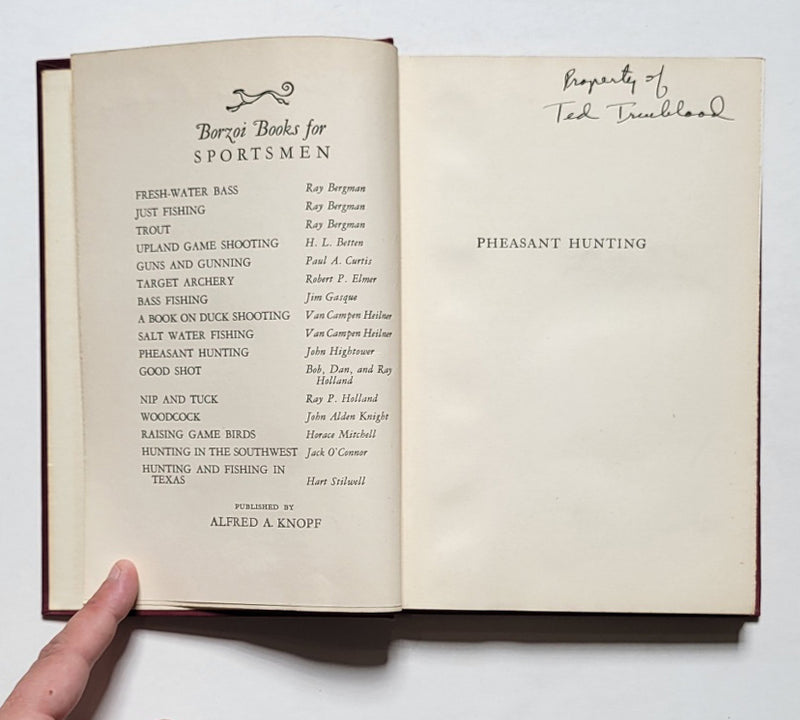 Borzoi Books for
SPORTSMEN
FRESH-WATER BASS Ray Bergman
JUST FISHING Ray Bergman
TROUT Ray Bergman
UPLAND GAME SHOOTING H. L. Betten
GUNS AND GUNNING Paul A. Curtis
TARGET ARCHERY Robert P. Elmer
BASS FISHING Jim Gasque
A BOOK ON DUCK SHOOTING Van Campen Heilner
SALT WATER FISHING Van Campen Heilner
PHEASANT HUNTING John Hightower
GOOD SHOT Bob, Dan, and Ray
Holland
NIP AND TUCK Ray P. Holland
WOODCOCK John Alden Knight
RAISING GAME BIRDS Horace Mitchell
HUNTING IN THE SOUTHWEST Jack O'Connor
HUNTING AND FISHING IN
TEXAS Hart Stilwell
PUBLISHED BY
ALFRED A. KNOPF
Property of
Ted Trueblood
PHEASANT HUNTING